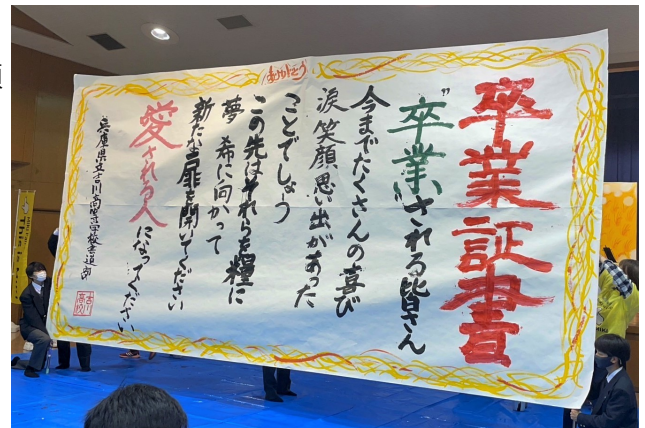 ありがとう
卒業証書
"卒業"される皆さん
今までたくさんの喜び
涙笑顔思い出があった
ことでしょう
この先はそれらを糧に
夢 希に向かって
新たな扉を開いてください
愛される人になってください
兵庫県立吉川高等学校書道部
吉川
高校